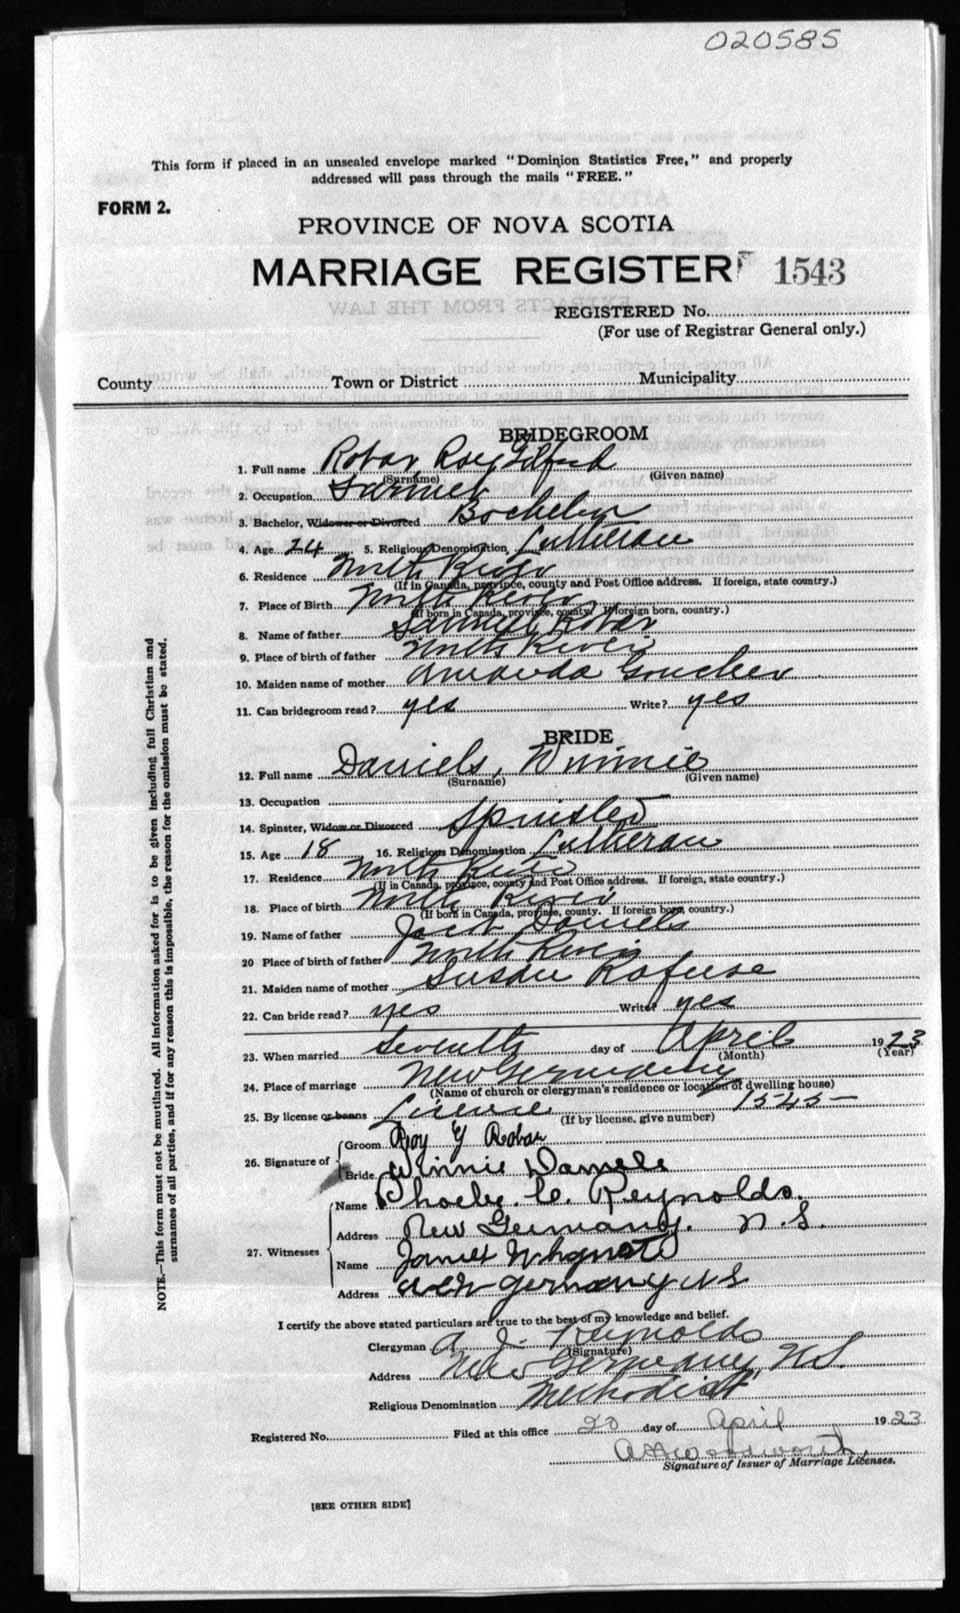 020585
This form if placed in an unsealed envelope marked "Dominion Statistics Free," and properly
addressed will pass through the mails "FREE."
FORM 2.
PROVINCE OF NOVA SCOTIA
MARRIAGE REGISTER 1543
REGISTERED No.
(For use of Registrar General only.)
County Town or District Municipality
BRIDEGROOM
1. Full name Robar, Roy Gilford
(Surname) (Given name)
2. Occupation Farmer
3. Bachelor, Widower or Divorced Bachelor
4. Age 24 5. Religious Denomination Lutheran
6. Residence North River
(If in Canada, province, county and Post Office address. If foreign, state country.)
7. Place of Birth North River
(If born in Canada, province, county. If foreign born, country.)
8. Name of father Samuel Robar
9. Place of birth of father North River
10. Maiden name of mother Amanda Goucher
11. Can bridegroom read? yes Write? yes
BRIDE
12. Full name Daniels, Winnie
(Surname) (Given name)
13. Occupation
14. Spinster, Widow or Divorced Spinster
15. Age 18 16. Religious Denomination Lutheran
17. Residence North River
(If in Canada, province, county and Post Office address. If foreign, state country.)
18. Place of birth North River
(If born in Canada, province, county. If foreign born, country.)
19. Name of father Daniels
20 Place of birth of father North River
21. Maiden name of mother Susan Rafuse
22. Can bride read? yes Write? yes
23. When married Seventh day of April 1923
(Month) (Year)
24. Place of marriage New Germany
(Name of church or clergyman's residence or location of dwelling house)
25. By license or banns License 1545
(If by license, give number)
26. Signature of Groom Roy G Robar
Bride Winnie Daniels
27. Witnesses Name Phoebe C. Reynolds.
Address New Germany. N.S.
Name James
Address New Germany N S
I certify the above stated particulars are true to the best of my knowledge and belief.
Clergyman A. J. Reynolds
(Signature)
Address New Germany, N.S.
Religious Denomination Methodist
Registered No. Filed at this office 20 day of April 1923
Woodworth
Signature of Issuer of Marriage Licenses.
[SEE OTHER SIDE]
NOTE.—This form must not be mutilated. All information asked for is to be given including full Christian and
surnames of all parties, and if for any reason this is impossible, the reason for the omission must be stated.